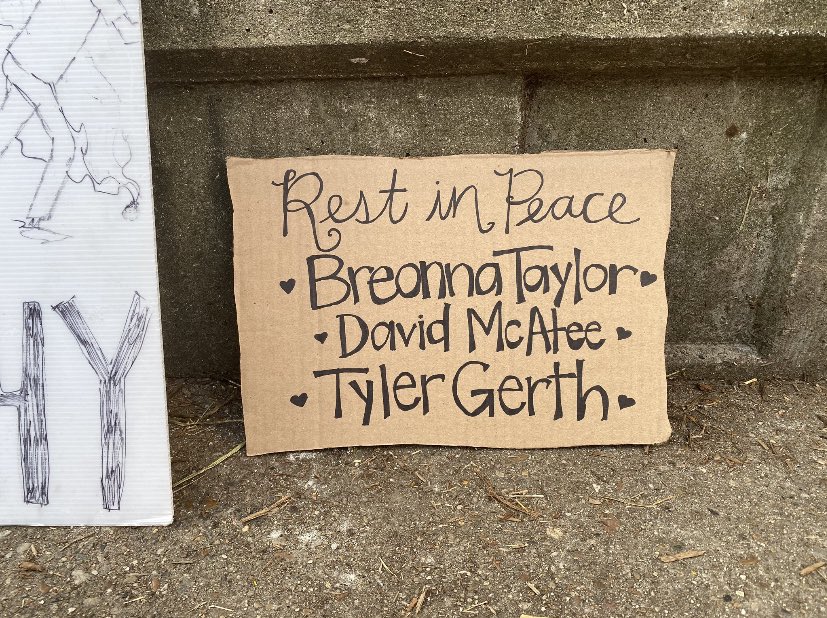 Rest in Peace
♥ Breonna Taylor ♥
♥ David McAtee ♥
♥ Tyler Gerth ♥
HY